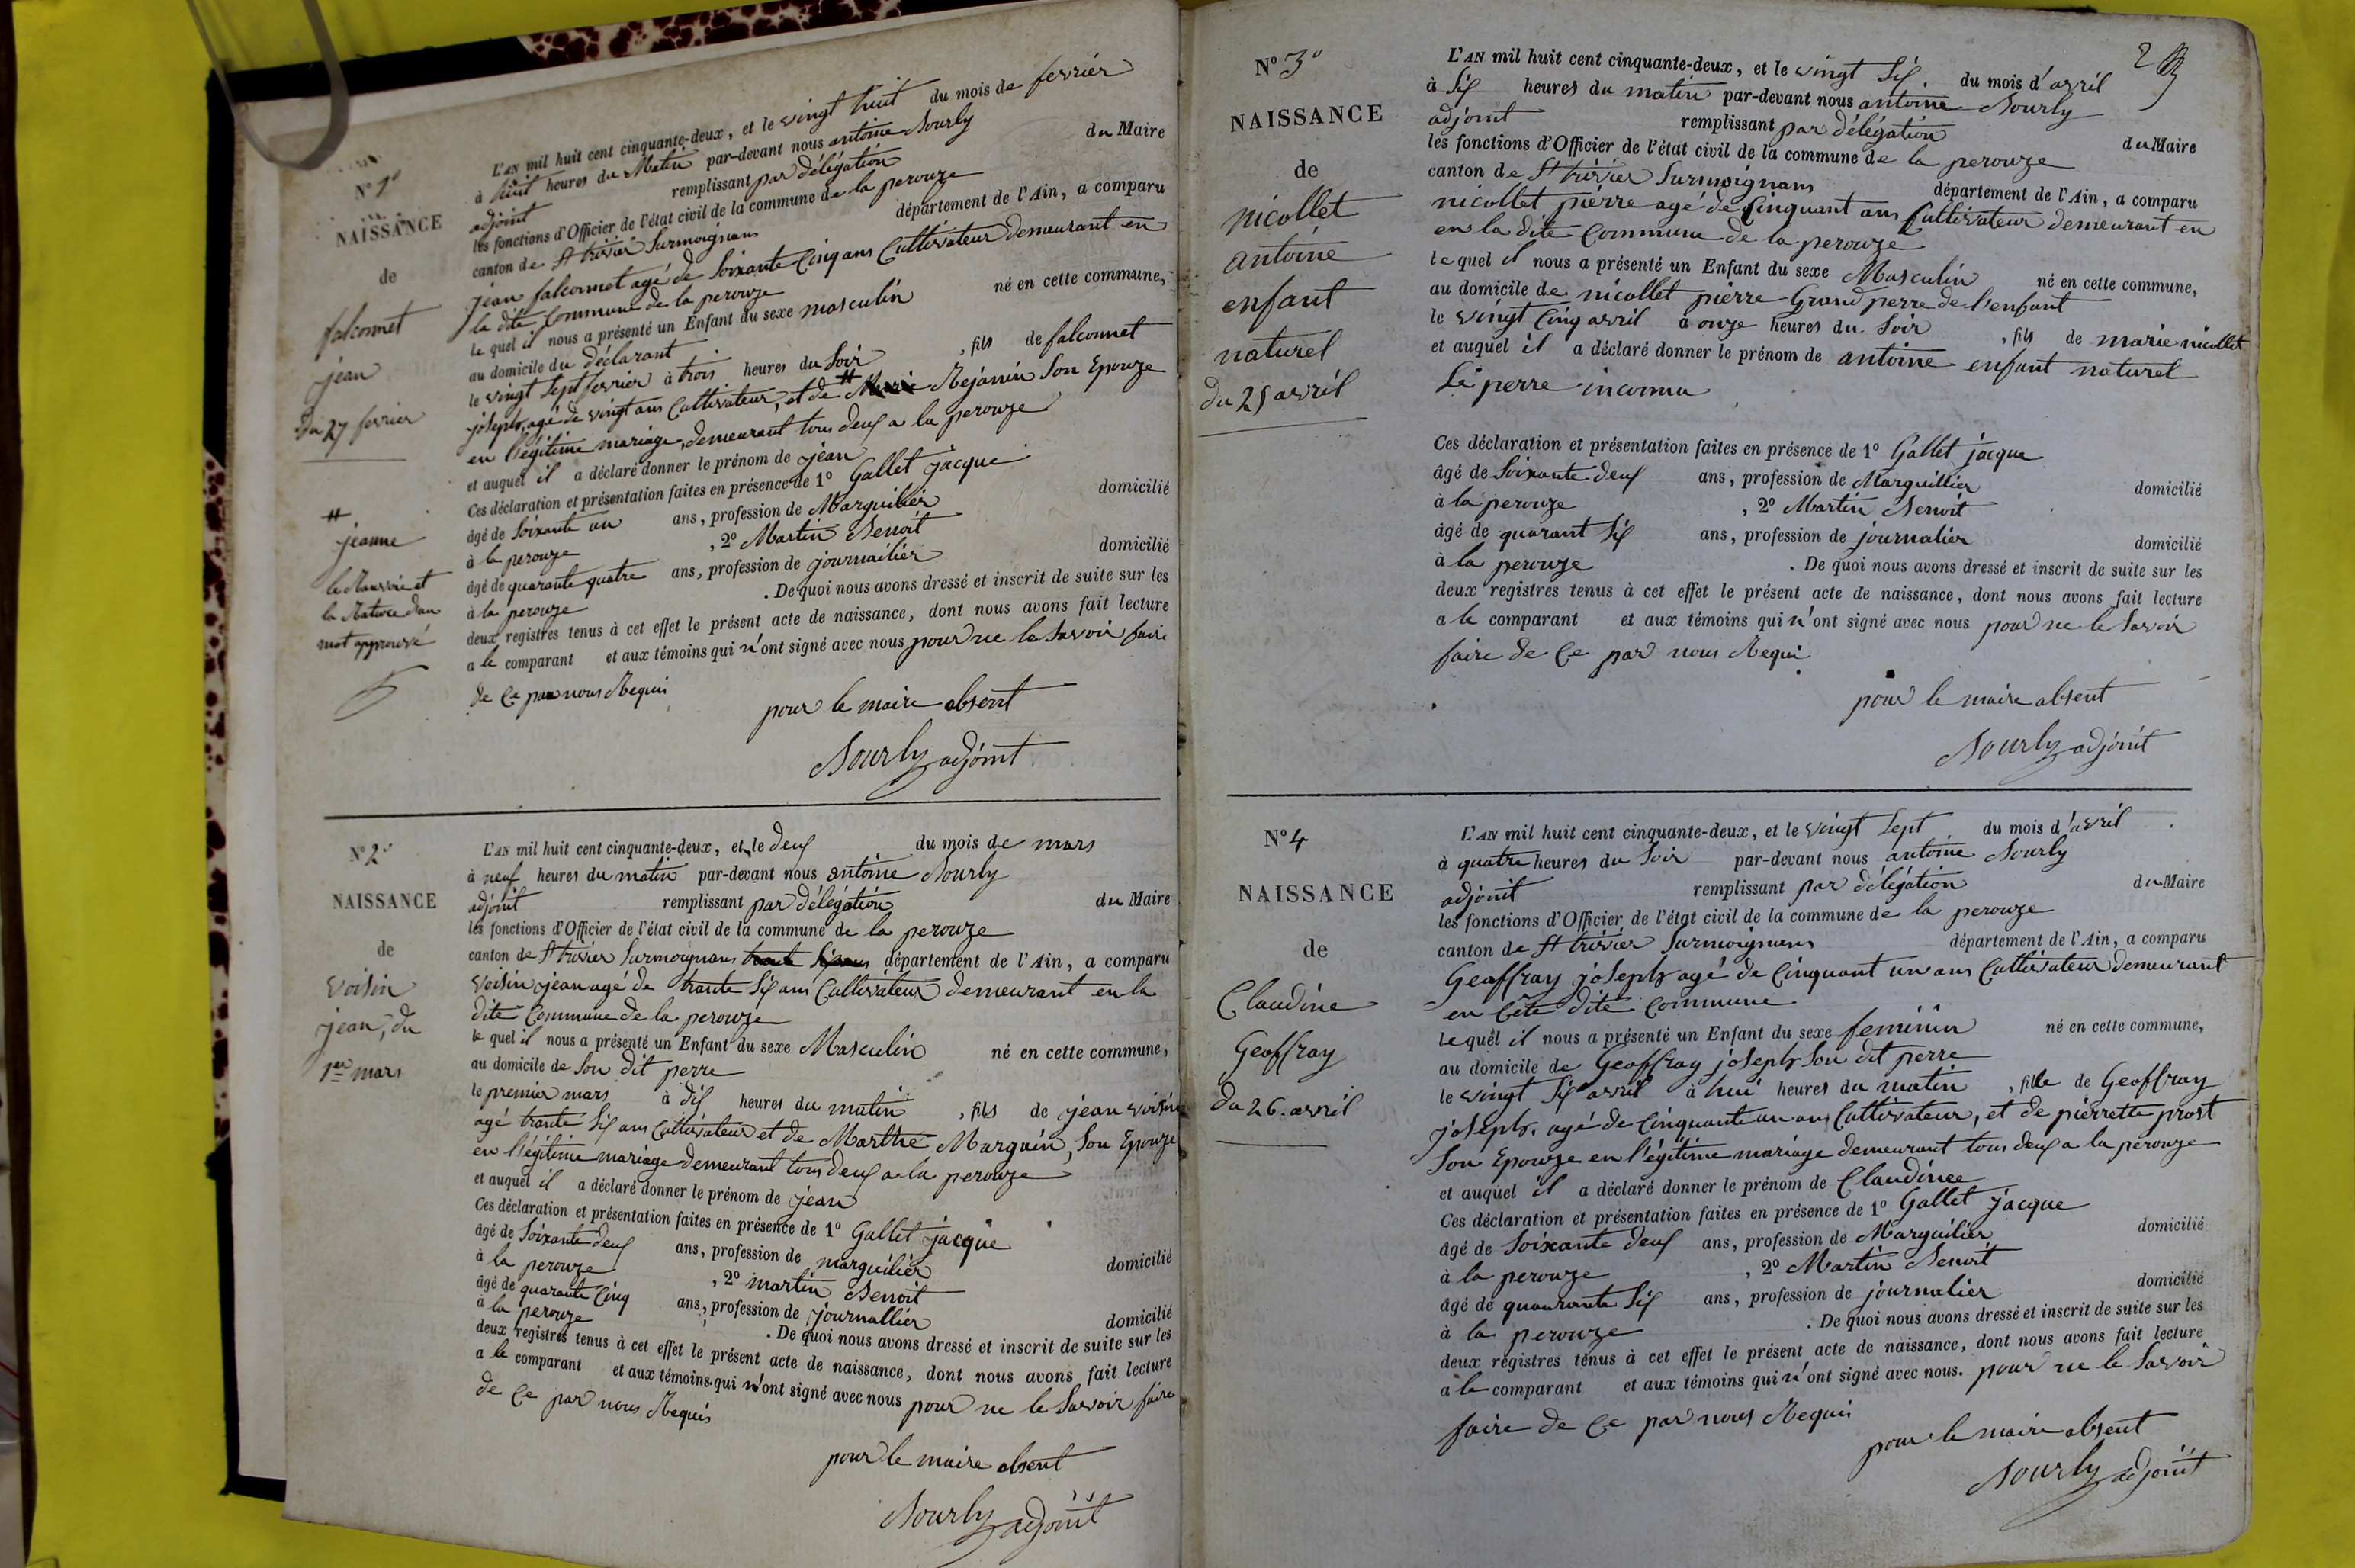 N° 1°
NAISSANCE
de
falconnet
jean
du 27 fevrier
L'AN mil huit cent cinquante-deux, et le vingt huit du mois de fevrier
à huit heures du Matin par-devant nous antoine Nourly
adjoint remplissant par délégation du Maire
les fonctions d'Officier de l'état civil de la commune de la perouze
canton de St trivier Surmoignans département de l'Ain, a comparu
jean falconnet agé de Soixante Cinq ans Cultivateur demeurant en
la dite Commune de la perouze
le quel il nous a présenté un Enfant du sexe masculin né en cette commune,
au domicile du déclarant
le vingt Sept fevrier à trois heures du Soir, fils de falconnet
joseph, agé de vingt ans Cultivateur, et de # Marie Rejanin Son Epouze
en l'égitime mariage, demeurant tous deux a la perouze
et auquel il a déclaré donner le prénom de jean
Ces déclaration et présentation faites en présence de 1° Gallet jacque
âgé de Soixante un ans, profession de Marguilier domicilié
à la perouze, 2° Martin Benoit
âgé de quarante quatre ans, profession de journailier domicilié
à la perouze. De quoi nous avons dressé et inscrit de suite sur les
deux registres tenus à cet effet le présent acte de naissance, dont nous avons fait lecture
a le comparant et aux témoins qui n'ont signé avec nous pour ne le Savoir faire
de Ce par nous Requis
#
jeanne
le Ranvoie et
la Rature d'un
mot approuvé
pour le maire absent
Nourly adjoint
N° 2°
NAISSANCE
de
Voisin
jean, du
1er mars
L'AN mil huit cent cinquante-deux, et le deux du mois de mars
à neuf heures du matin par-devant nous antoine Nourly
adjoint remplissant par délégation du Maire
les fonctions d'Officier de l'état civil de la commune de la perouze
canton de St trivier Surmoignans trante Six ans département de l'Ain, a comparu
Voisin jean agé de trante Six ans Cultivateur demeurant en la
dite Commune de la perouze
le quel il nous a présenté un Enfant du sexe Masculin né en cette commune,
au domicile de Son dit perre
le premier mars à dix heures du matin, fils de jean voisin
agé trante Six ans Cultivateur et de Marthe Marguin, Son Epouze
en l'égitime mariage demeurant tous deux a la perouze
et auquel il a déclaré donner le prénom de jean
Ces déclaration et présentation faites en présence de 1° Gallet jacque
âgé de Soixante deux ans, profession de marguilier domicilié
à la perouze, 2° martin Benoit
âgé de quarante Cinq ans, profession de journallier domicilié
à la perouze. De quoi nous avons dressé et inscrit de suite sur les
deux registres tenus à cet effet le présent acte de naissance, dont nous avons fait lecture
a le comparant et aux témoins qui n'ont signé avec nous pour ne le Savoir faire
de Ce par nous Requis
pour le maire absent
Nourly adjoint
2
N° 3°
NAISSANCE
de
nicollet
antoine
enfant
naturel
du 25 avril
L'AN mil huit cent cinquante-deux, et le vingt Six du mois d'avril
à Six heures du matin par-devant nous antoine Nourly
adjoint remplissant par délégation du Maire
les fonctions d'Officier de l'état civil de la commune de la perouze
canton de St trivier Surmoignans département de l'Ain, a comparu
nicollet pierre agé de Cinquant ans Cultivateur demeurant en
en la dite Commune de la perouze
le quel il nous a présenté un Enfant du sexe Masculin né en cette commune,
au domicile de nicollet pierre Grand perre de l'enfant
le vingt Cinq avril à onze heures du Soir, fils de marie nicollet
et auquel il a déclaré donner le prénom de antoine enfant naturel
Le perre inconnu
Ces déclaration et présentation faites en présence de 1° Gallet jacque
âgé de Soixante deux ans, profession de Marguillier domicilié
à la perouze, 2° Martin Benoit
âgé de quarant Six ans, profession de journalier domicilié
à la perouze. De quoi nous avons dressé et inscrit de suite sur les
deux registres tenus à cet effet le présent acte de naissance, dont nous avons fait lecture
a le comparant et aux témoins qui n'ont signé avec nous pour ne le Savoir
faire de Ce par nous Requi
pour le maire absent
Nourly adjoint
N° 4
NAISSANCE
de
Claudine
Geoffray
du 26. avril
L'AN mil huit cent cinquante-deux, et le vingt Sept du mois d'avril
à quatre heures du Soir par-devant nous antoine Nourly
adjoint remplissant par délégation du Maire
les fonctions d'Officier de l'état civil de la commune de la perouze
canton de St trivier Surmoignans département de l'Ain, a comparu
Geoffray joseph agé de Cinquant un ans Cultivateur demeurant
en Cête dite Commune
le quel il nous a présenté un Enfant du sexe feminin né en cette commune,
au domicile de Geoffray joseph Son dit perre
le vingt Six avril à hui heures du matin, fille de Geoffray
joseph. agé de Cinquante un ans Cultivateur, et de pierrette prost
Son Epouze en l'égitime mariage demeurant tous deux a la perouze
et auquel il a déclaré donner le prénom de Claudinee
Ces déclaration et présentation faites en présence de 1° Gallet jacque
âgé de Soixante deux ans, profession de Marguilier domicilié
à la perouze, 2° Martin Benoit
âgé de quaurante Six ans, profession de journalier domicilié
à la perouze. De quoi nous avons dressé et inscrit de suite sur les
deux registres tenus à cet effet le présent acte de naissance, dont nous avons fait lecture
a le comparant et aux témoins qui n'ont signé avec nous. pour ne le Savoir
faire de Ce par nous Requi
pour le maire absent
Nourly adjoint